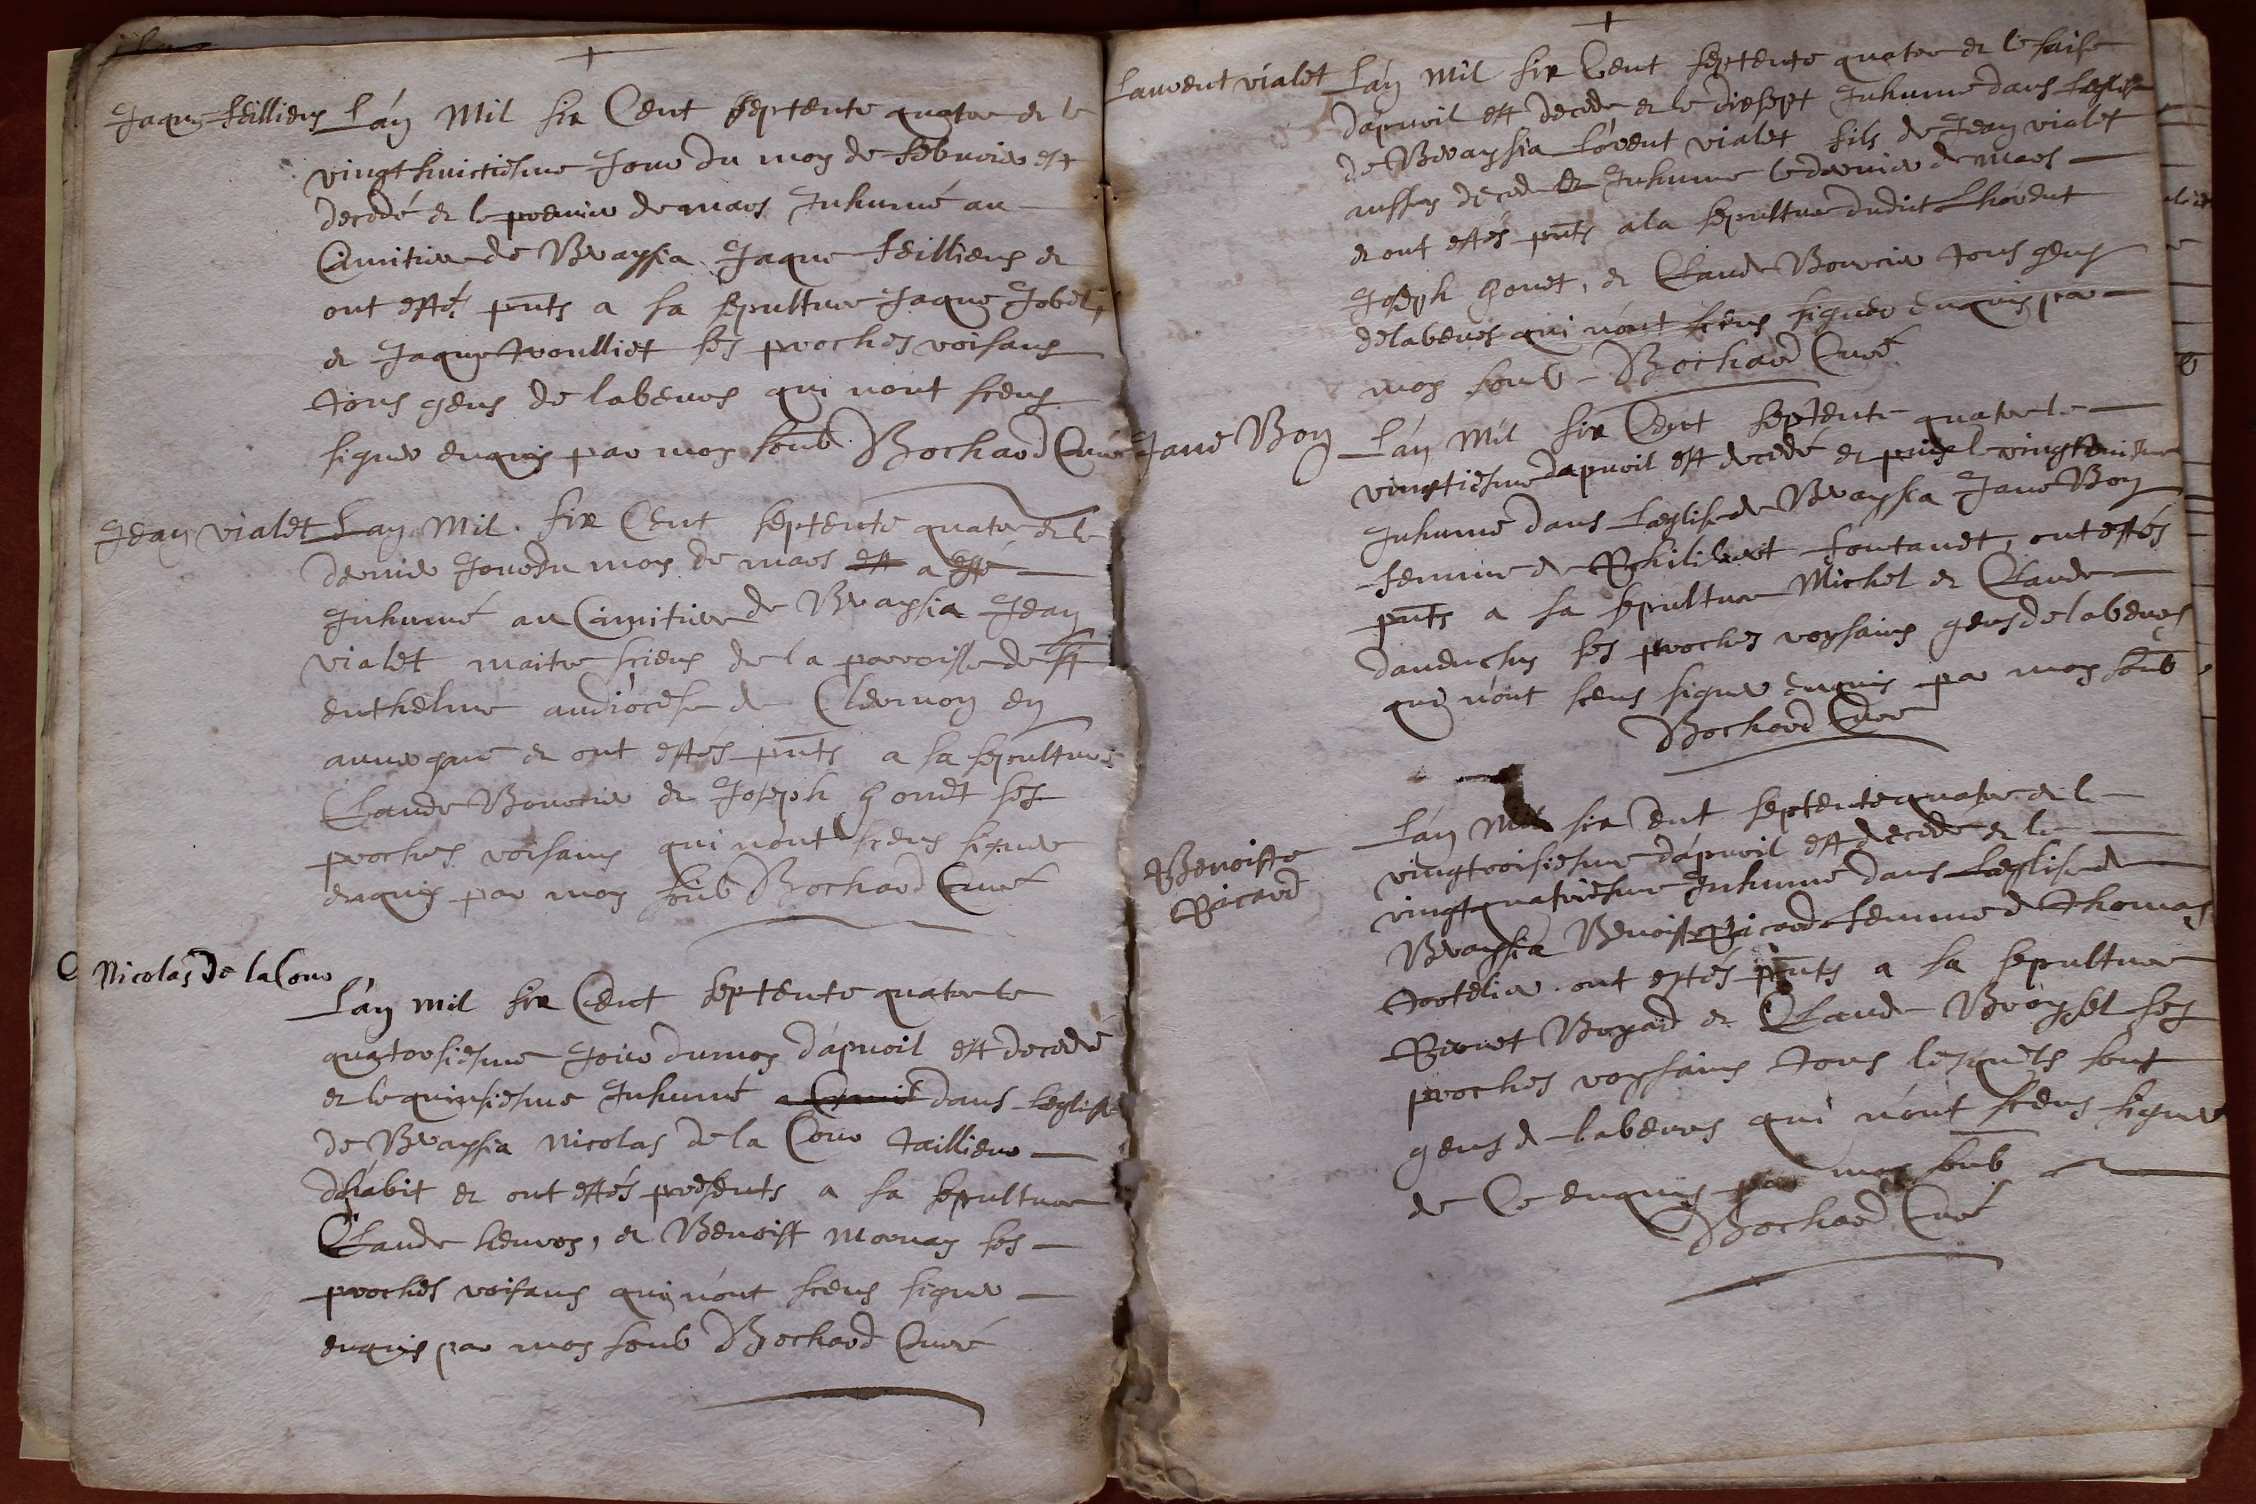 Jaque feilliens
L'an Mil six Cent septente quatre et le
vingt huictiesme Jour du moy de febvrier est
decedé et le premier de mars Inhumé au
Cimitiere de Brayssia Jaque feilliens et
ont estés pnts a sa sepulture Jaque Jobel,
et Jaque trouilliet ses proches voisans
tous gens de labeurs qui n'ont sceus
signer enquis par moy soub. Bochard Curé
Jean vialet
L'an Mil six Cent septente quatre et le
dernier Jour du moy de mars est a esté
Inhumé au Cimitiere de Braysia Jean
vialet maitre scieur de la parroisse de st
enthelme au diocese de Clermon en
auvergne et ont estés pnts a sa sepulture
Claude Bourcier et Joseph gonet ses
proches voisans qui n'ont sceus signer
enquis par moy soub Bochard Curé
Nicolas De la Cour
L'an mil six Cent septente quatre le
quatorsiesme Jour du moy d'apvril est decedé
et le quinsiesme Inhumé dans leglise
de Brayssia Nicolas de la Cour taillieur
d'habit et ont estés presents a sa sepulture
Claude heuroy, et Benoist Mornay ses
proches voisans qui n'ont sceus signer
enquis par moy soub Bochard Curé
Laurent vialet
L'an Mil six Cent septente quatre et le saise
d'apvril est decede et le diesept Inhume dans leglise
de Brayssia lorent vialet fils de Jean vialet
aussy decede et Inhume le dernier de mars
et ont estés pnts a la sepulture dudict Lhorent
Joseph gonet, et Claude Bourcier tous gens
de labeurs qui n'ont sceus signer enquis par
moy soub Bochard Curé
Jane Boy
L'an Mil six Cent septente quatre le
vingtiesme d'apvril est decedé et puis le vingt
Inhumé dans L'eglise de Brayssia Jane Boy
femme de Philibert fontanet, ont estés
pnts a sa sepulture Michel et Claude
danduchy ses proches voysains gens de labeurs
qui n'ont sceus signer enquis par moy soub
Bochard Curé
Benoiste
Picard
L'an Mil six Cent septente quatre et le
vingtroisiesme d'apvril est decedé et le
vingtquatriesme Inhumé dans Leglise de
Brayssia Benoiste picard femme de thomas
tortelier ont estés pnts a sa sepulture
Pernet Bryard et Claude Broysset ses
proches voysains tous lesquels sont
gens de labeurs qui n'ont sceus signer
de Ce enquis par moy soub
Bochard Curé